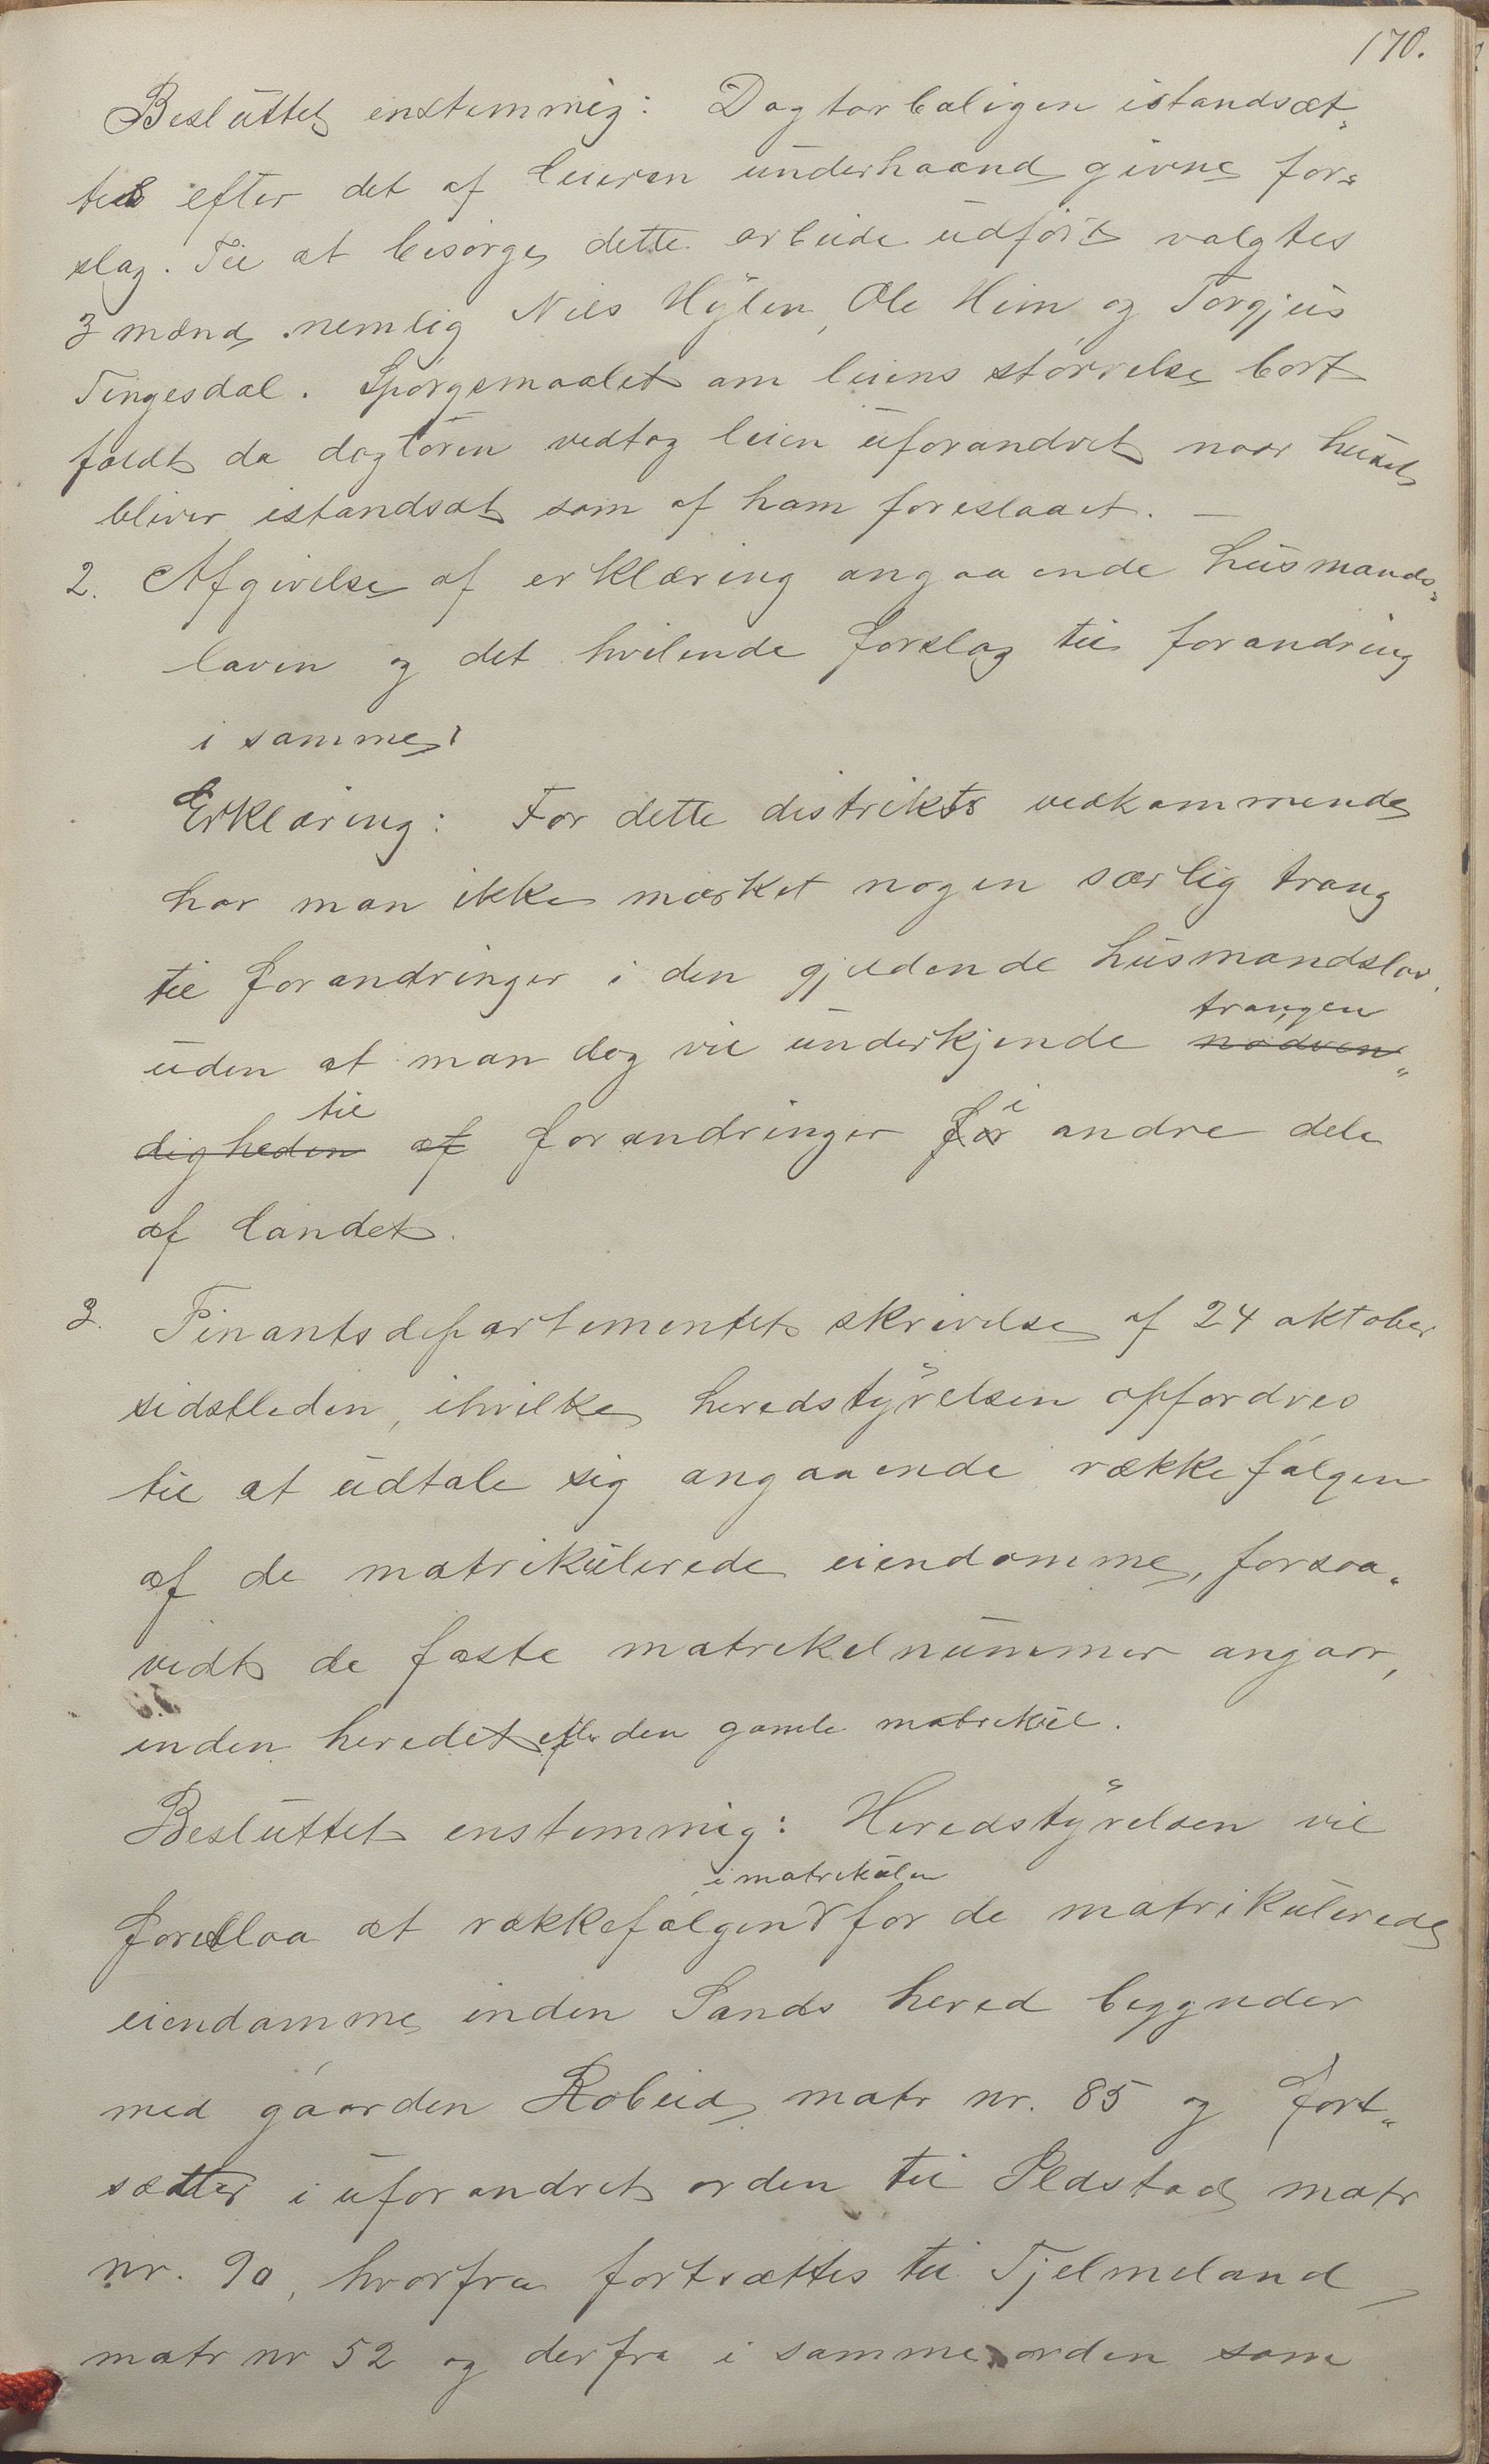 170.
Besluttet enstemmig: Dogtorboligen istandsæt-
tes efter det af leieren underhaand givne for-
slag. Til at besørge dette arbeide udført valgtes
3 mænd nemlig Nils Hylen, Ole Heim og Torgjus
Tengesdal. Spørgsmaalet om leiens størrelse bort
faldt da dogtoren vedtog leien uforandret naar huset
bliver istandsat som af ham foreslaaet. —
2. Afgivelse af erklæring angaaende husmands-
loven og det hvilende forslag til forandring
i samme.
Erklæring: For dette distrikts vedkommende
har man ikke mærket nogen særlig trang
til forandringer i den gjeldende husmandslov,
trangen
uden at man dog vil underkjende nødven-
til i
digheden af forandringer for andre dele
af landet.
3. Finantsdepartementets skrivelse af 24 oktober
sidstleden, ihvilke heredstyrelsen opfordres
til at udtale sig angaaende rækkefølgen
af de matrikulerede eiendomme, forsaa-
vidt de faste matrikelnummer angaar,
inden heredet efter den gamle matrikul.
Besluttet enstemmig: Heredstyrelsen vil
i matrikulen
foreslaa at rækkefølgen for de matrikulerede
eiendomme inden Sands hered begynder
med gaarden Robeid matr nr. 85 og fort-
sætter i uforandret orden til Østad matr
nr. 90, hvorfra fortsættes til Tjelmeland
matr nr 52 og derfra i samme orden som